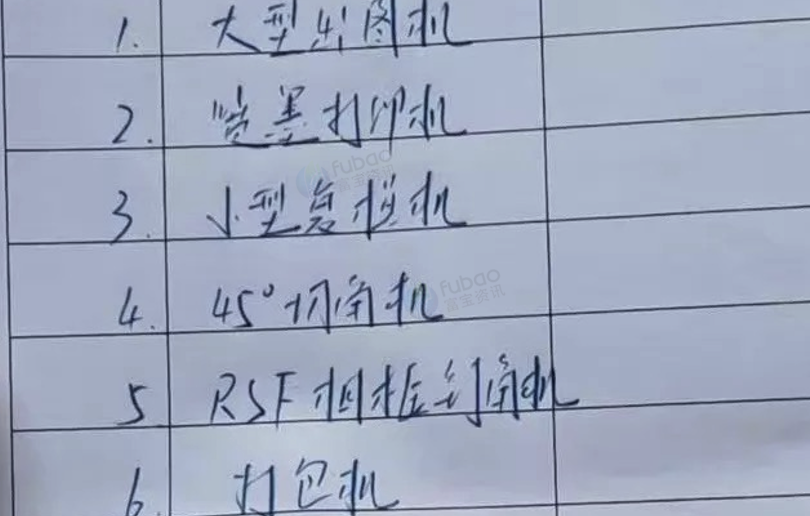 1. 大型出图机
2. 喷墨打印机
3. 小型复模机
4. 45°切角机
5 RSF相框钉角机
6. 打包机
fubao
富宝资讯
fubao
富宝资讯